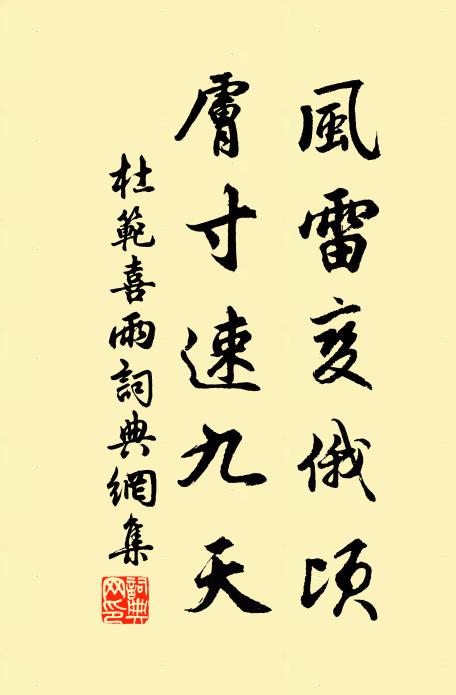 風雷变俄頃
膚寸速九天
杜範喜雨詞典網集
詞典网印